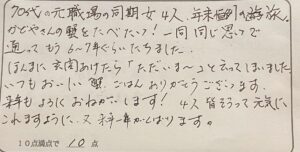 70代の元職場の同期女4人、年末恒例の蟹旅。
かどやさんの蟹をたべたい!一同同じ思いで
通ってもう6〜7年ぐらいたちました。
ほんまに玄関あけたら「ただいま〜」と云ってしまいました
いつもおいしい蟹ごはんありがとうございます。
来年もよろしくおねがいします!4人皆そろって元気に
これますように、又来年一年がんばります。
10点満点で 10 点